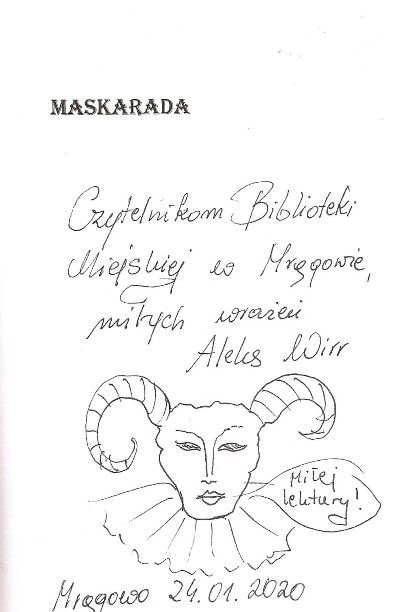 MASKARADA
Czytelnikom Biblioteki
Miejskiej w Mrągowie,
miłych wrażeń
Aleks Wirr
Miłej
lektury!
Mrągowo 24.01.2020